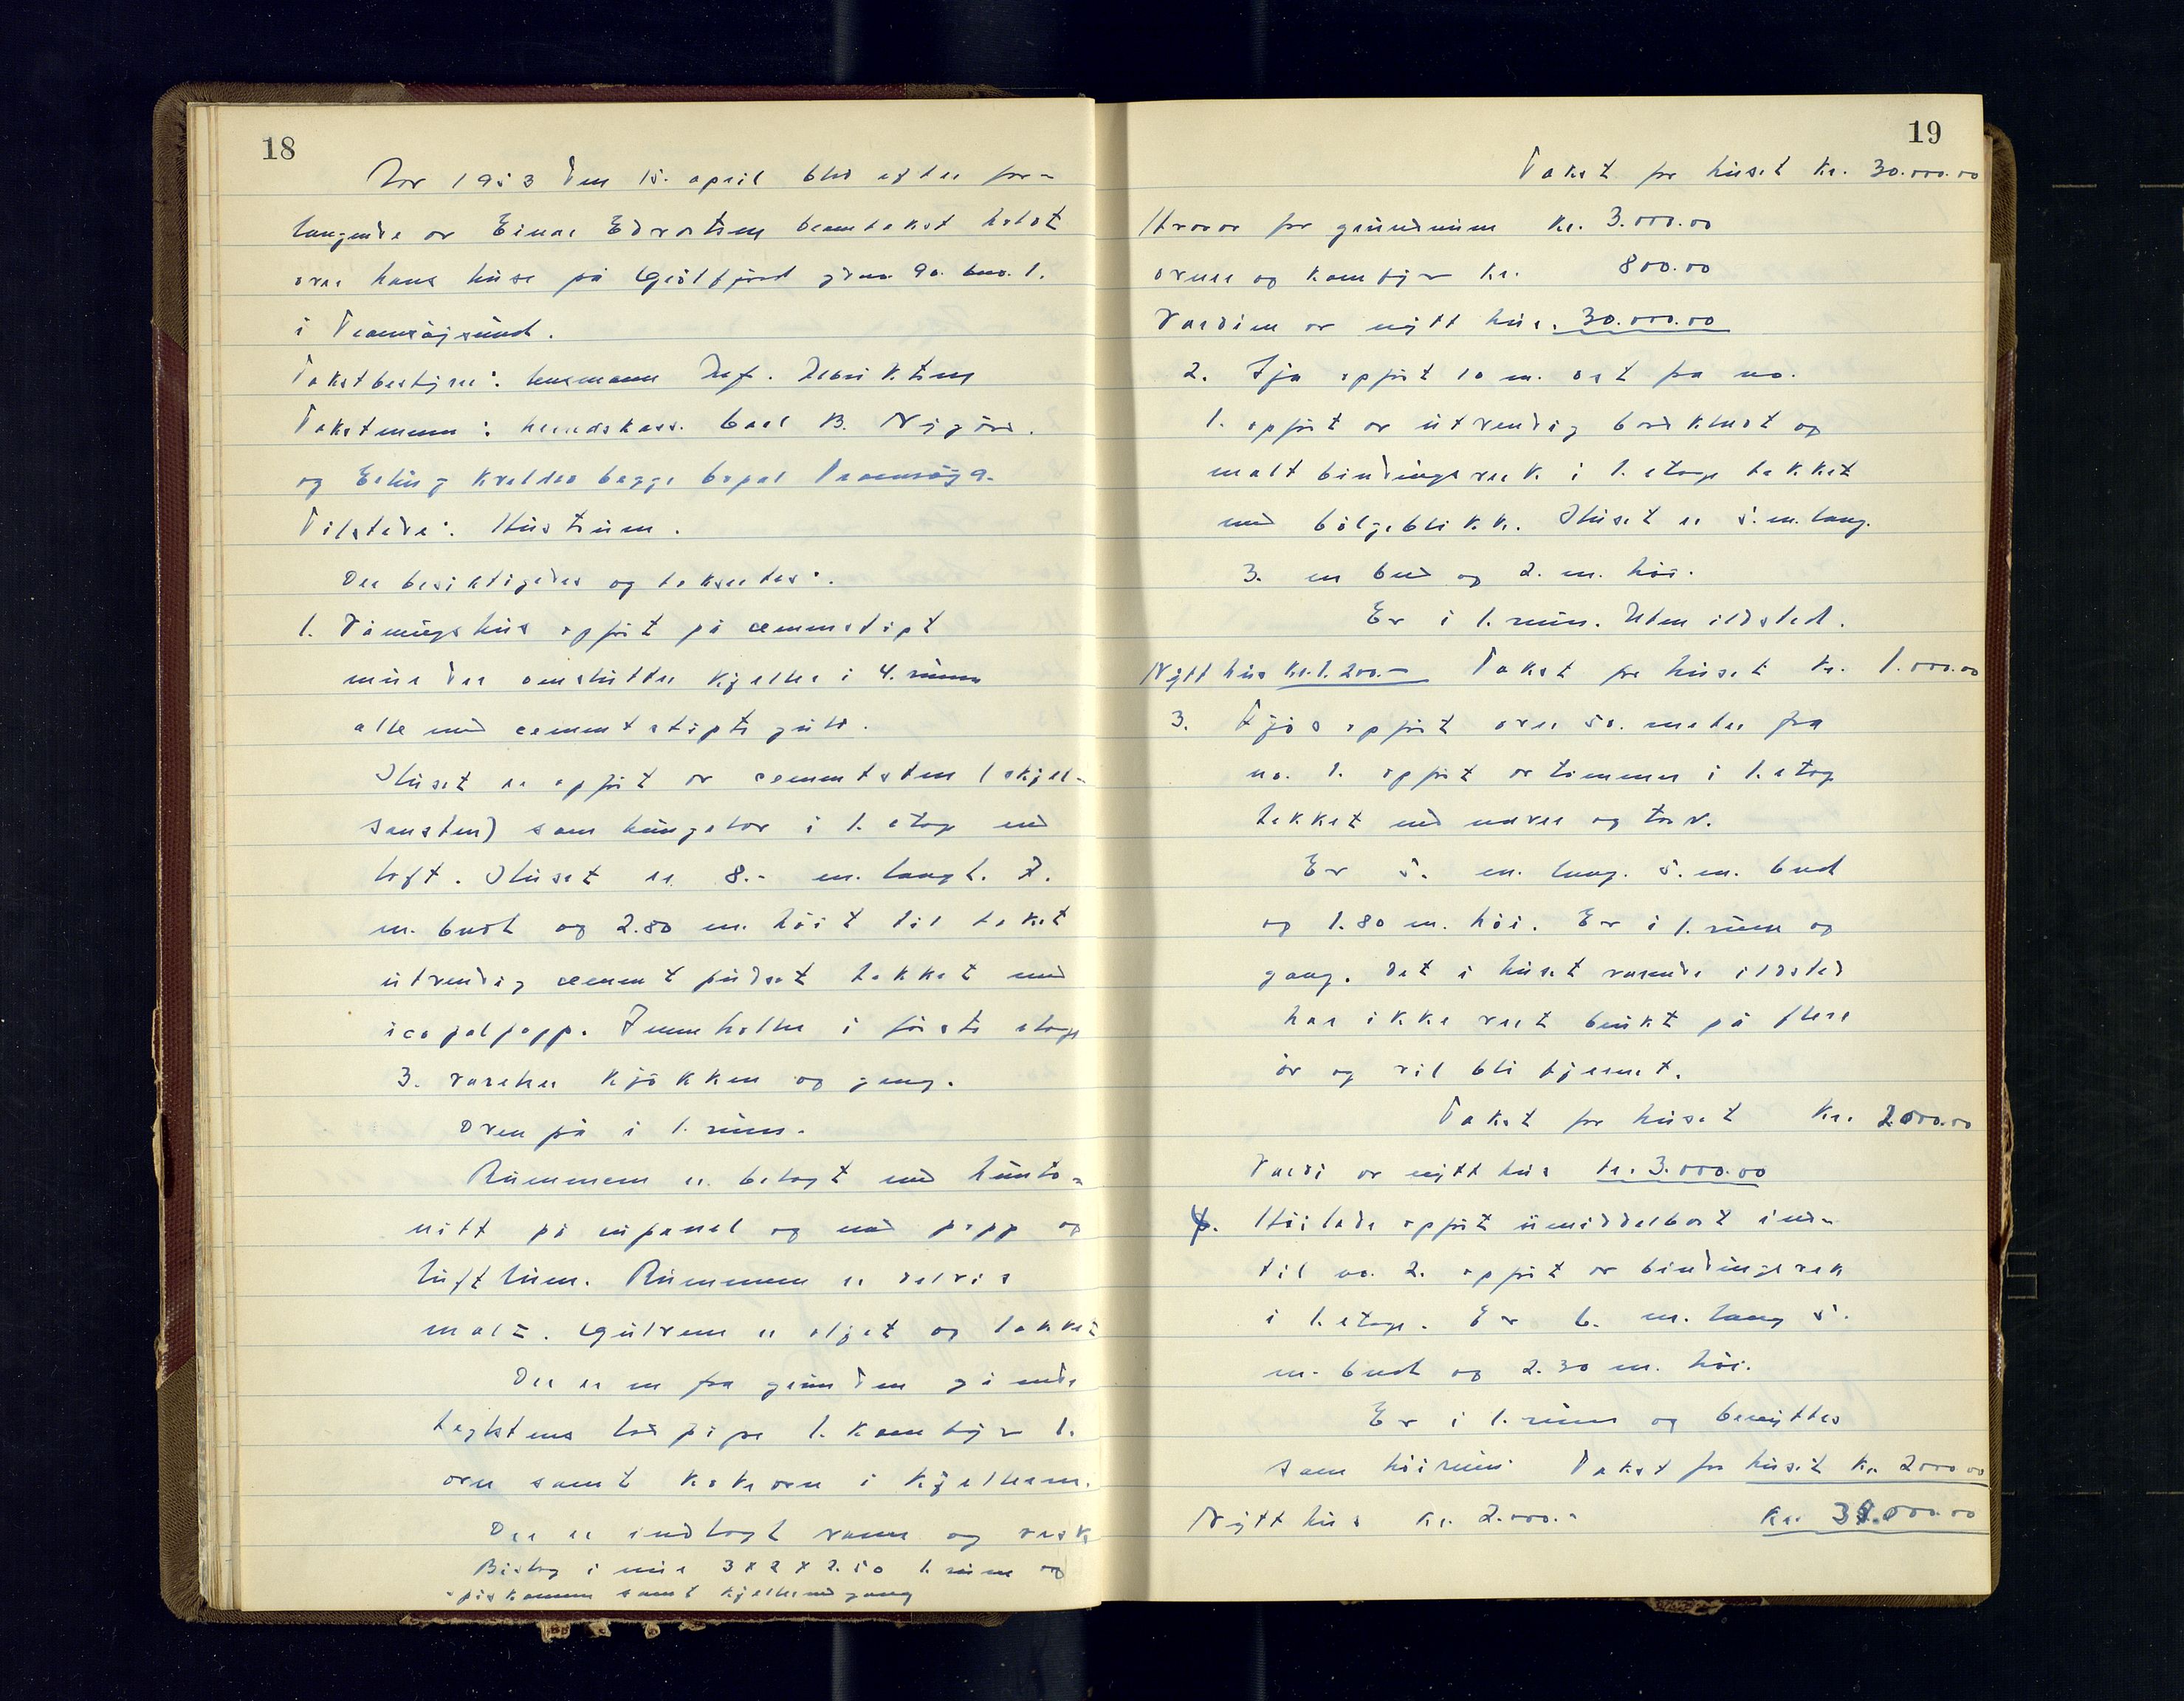 18
År 1953 den 15. april blev efter for-
langende av Einar Edvartsen branntakst holdt
over hans huse på Grötfjord grno. 90. bno. 1.
i Tromsöysund.
Takstbestyrer: lensmann
Takstmenn: herredskass. Carl B. Nygård.
og Erling begge bopel Tromsöya.
Tilstede: Hustruen.
Der besiktigedes og taksertes:
1. Våningshus opfört på cementstöpt
mur der omslutter kjeller i 4. rum
alle med cementstöpte gulv.
Huset er opfört av cementsten (skjel-
sansten) som bungalov i 1. etage med
loft. Huset er 8.- m. langt. 7.
m. bredt og 2.80 m. höit til taket
utvendig cement pudset tekket med
icopalpapp. Inneholder i förste etage
3. værelser kjökken og gang.
Ovenpå i 1. rum.
Rummene er belagt med hunto-
nitt på rupanel og med papp og
luftlum. Rummene er delvis
malt. Gulvene er oljet og lakket
Der er en fra grunden gående
teglstens löspipe 1. komfyr 1.
ovn samt kokeovn i kjelleren.
Der er indlagt vann og vask
Bislag i mur 3 x 2 x 2.50 1. rum og
spiskammer samt kjellernedgang
19
Takst for huset kr. 30.000.00
Hvorav for grundmuren kr. 3.000.00
ovner og komfyr kr. 800.00
Værdien av nytt hus. 30.000.00
2. Sjå opfört 10 m. öst fra no.
1. opfört av utvendig bordklædt og
malt bindingsverk i 1. etage tekket
med bölgeblikk. Huset er 5. m. lang.
3. m bred og 2. m. höi.
Er i 1. rum. Uten ildsted.
Nytt hus kr. 1.200.- Takst for huset kr. 1.000.00
3. Fjös opfört over 50. meter fra
no. 1. opfört av tömmer i 1. etage
tekket med never og torv.
Er 5. m. lang. 5. m. bred
og 1.80 m. höi. Er i 1. rum og
gang. Det i huset værende ildsted
har ikke vært brukt på flere
år og vil bli fjernet.
Takst for huset kr. 2000.00
Værdi av nytt hus kr. 3.000.00
4. Höilade opfört umiddelbart ind-
til no. 2. opfört av bindingsverk
i 1. etage. Er 6. m. lang 5.
m. bred og 2.30 m. höi.
Er i 1. rum og benyttes
som höirum Takst for huset kr. 2000.00
Nytt hus kr. 2.000.- kr. .000.00